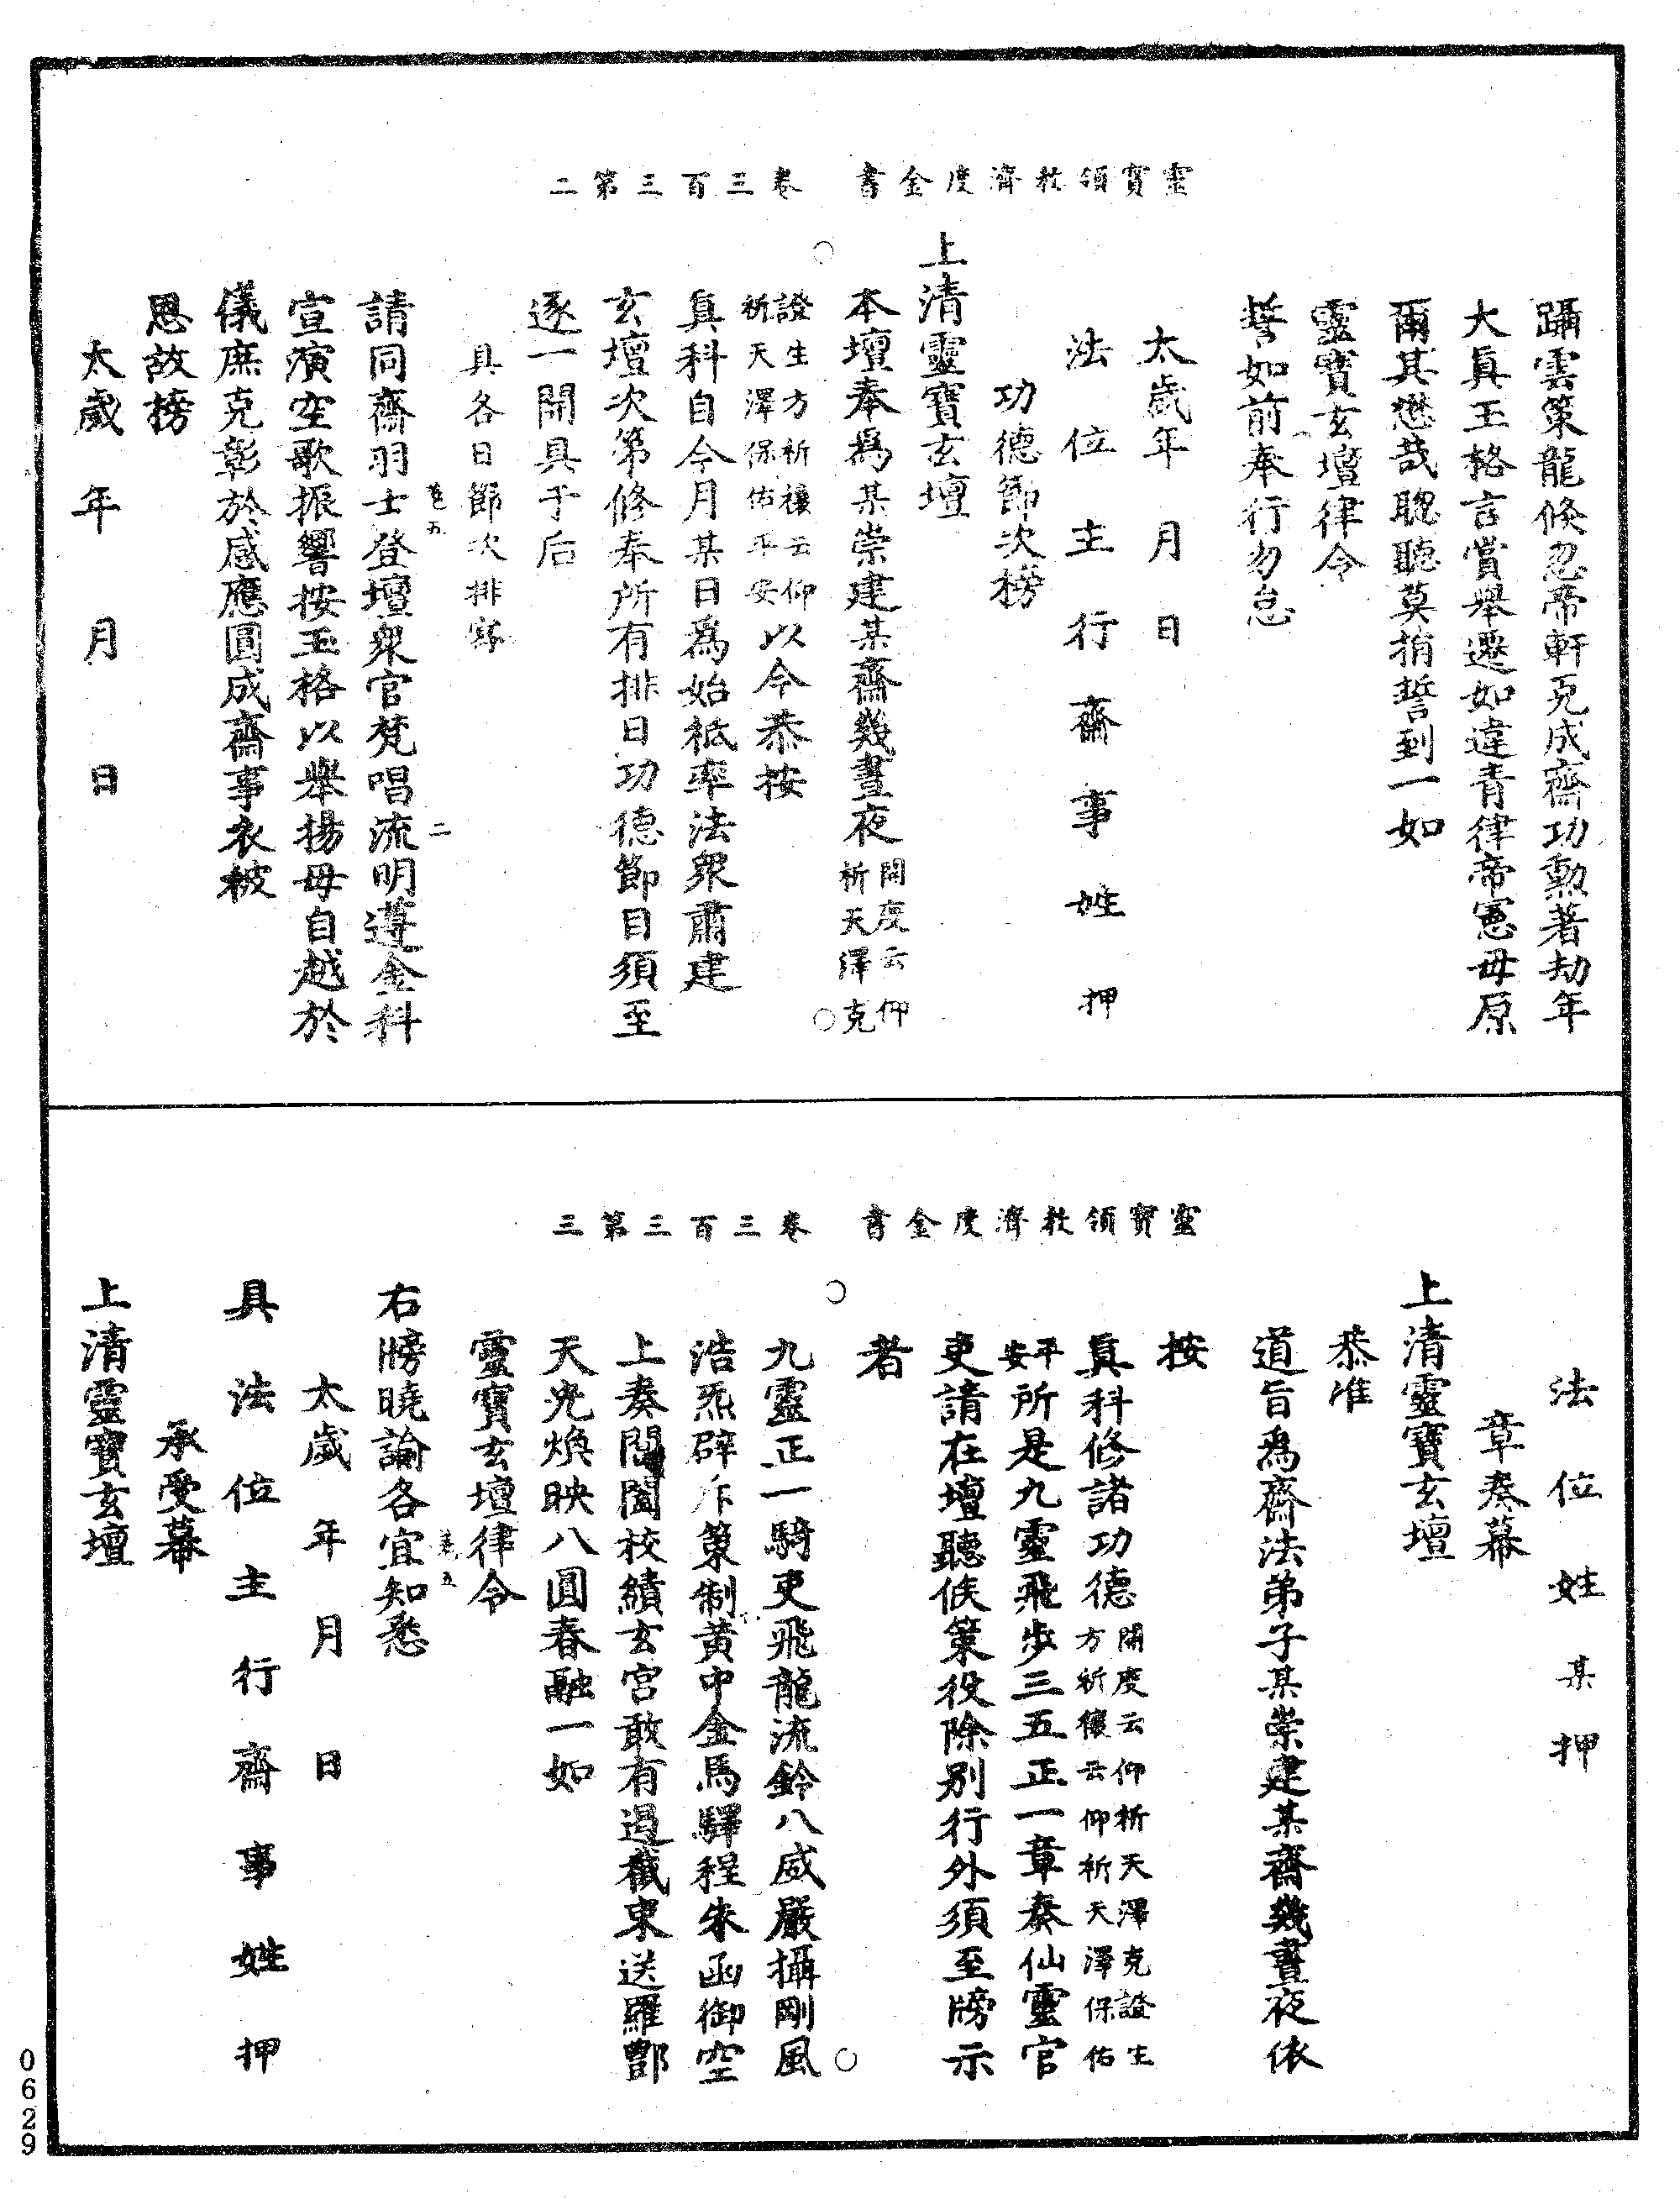 靈寶領教濟度金書　卷三百三第二
躡雲策龍倏忽帝軒克成齋功勳著劫年
大眞玉格言賞舉遷如違青律帝憲毋原
爾其懋哉聰聽莫捎誓到一如
靈寶玄壇律令
誓如前奉行勿怠
太歲年　月　日
法位主行齋事姓押
功德節次榜
上清靈寶玄壇
本壇奉爲某崇建某齋幾晝夜開度云仰祈天澤克
證生方祈禳云仰祈天澤保佑平安以今恭按
眞科自今月某日爲始祗率法衆肅建
玄壇次第修奉所有排日功德節目須至
逐一開具于后
具各日節次排寫
卷五　二
請同齋羽士登壇衆官梵唱流明遵金科
宣演空歌振響按玉格以舉揚毋自越於
儀庶克彰於感應圓成齋事衣被
恩故榜
太歲　年　月　日
靈寶領教濟度金書　卷三百三第三
法位姓某押
章奏幕
上清靈寶玄壇
恭准
道旨爲齋法弟子某崇建某齋幾晝夜依
按
眞科修諸功德開度云仰祈天澤克證生方祈禳云仰祈天澤保佑
平安所是九靈飛步三五正一章奏仙靈官
吏請在壇聽候策役除別行外須至牓示
者
九靈正一騎吏飛龍流鈴八威嚴攝剛風
浩炁辟斥策制黃中金馬驛程朱函御空
上奏閶闔校績玄宮敢有過截東送羅酆
天光煥映八圓春融一如
靈寶玄壇律令
卷五
右牓曉諭各宜知悉
太歲　年　月　日
具法位主行齋事姓押
承受幕
上清靈寶玄壇
0629